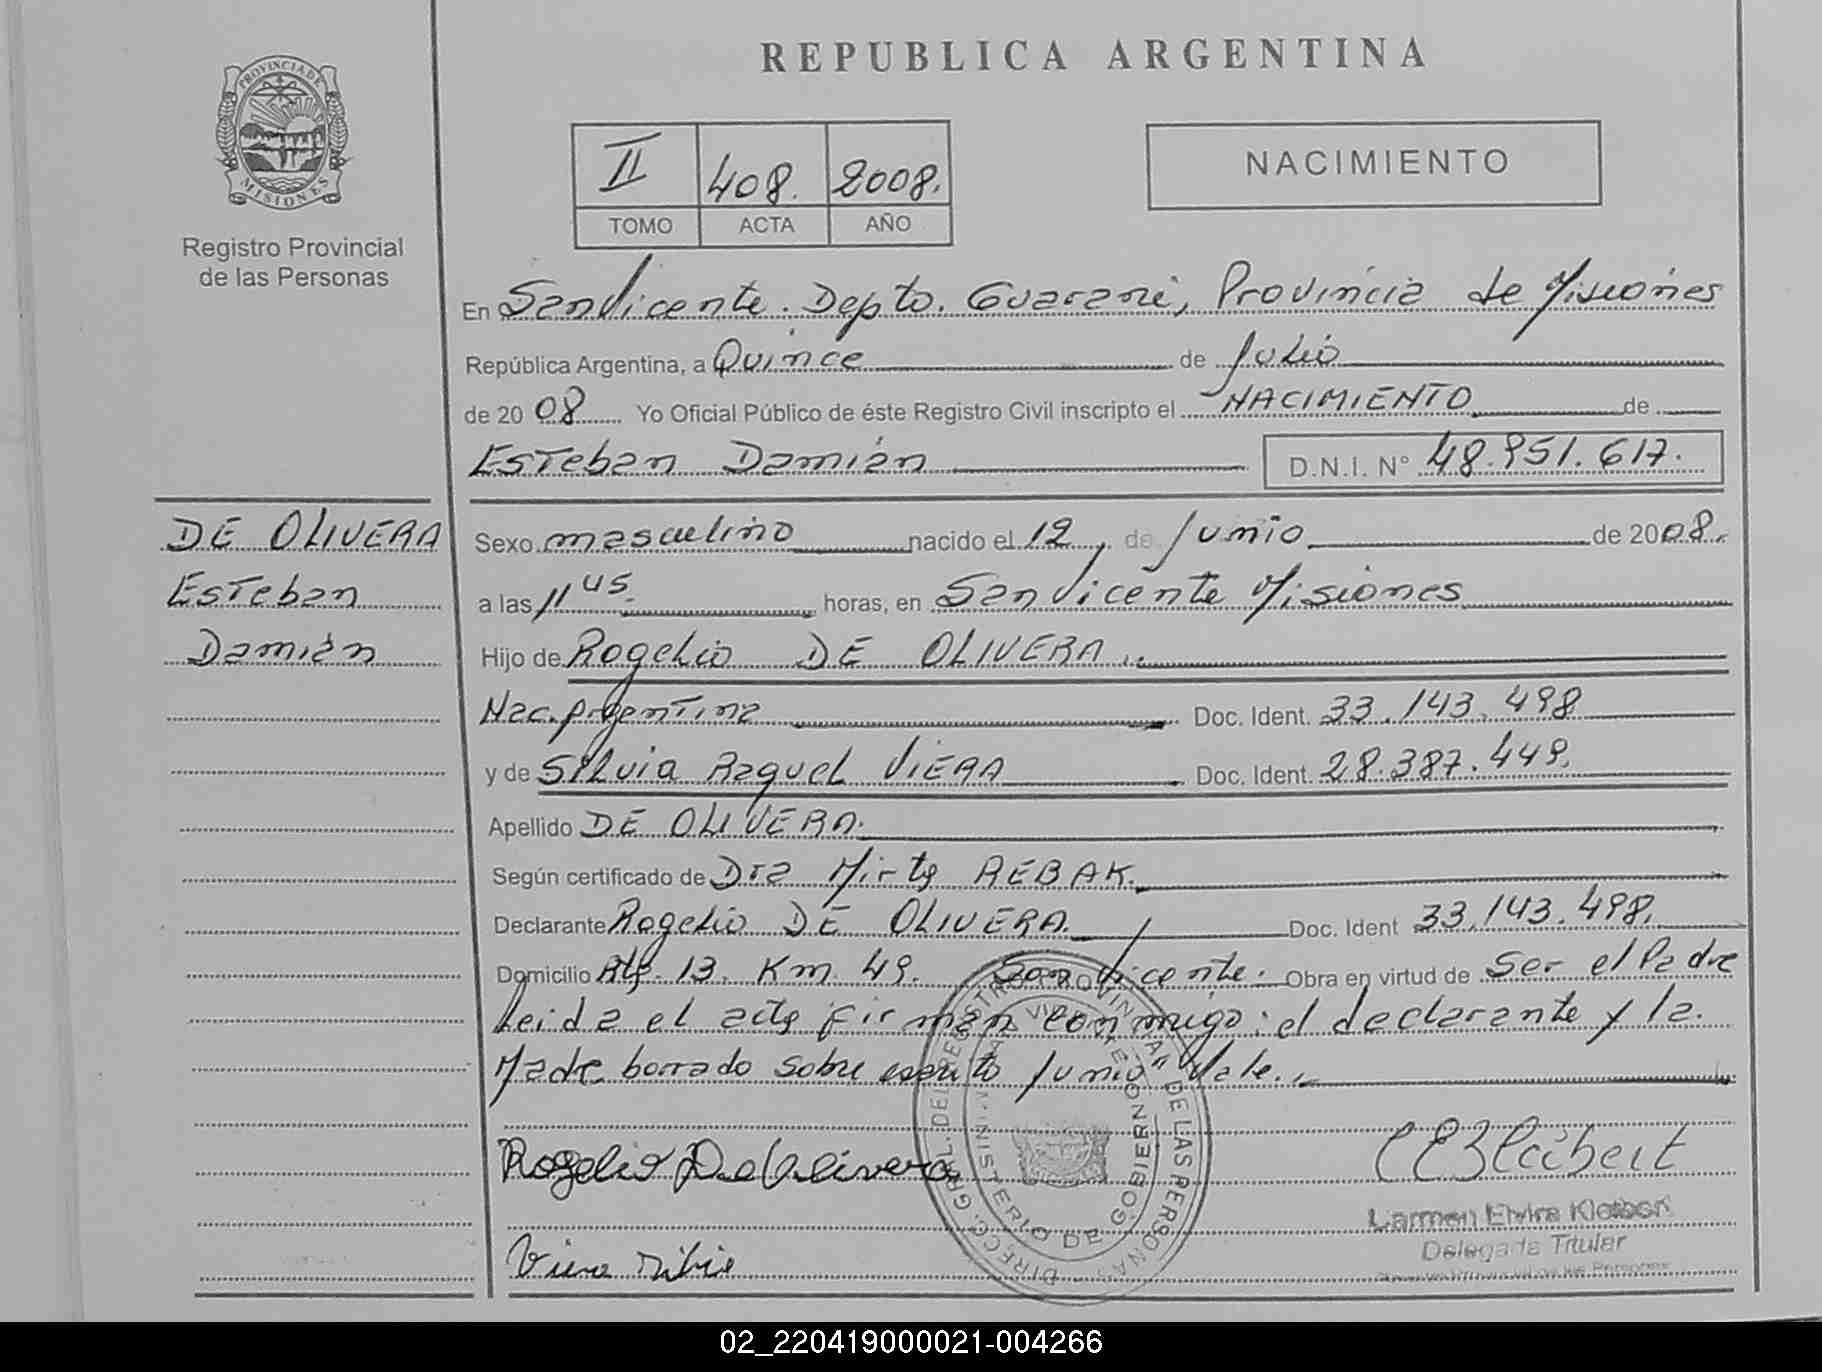 REPUBLICA ARGENTINA
PROVINCIA DE
MISIONES
Registro Provincial
de las Personas
II 408. 2008.
TOMO ACTA AÑO
NACIMIENTO
En San Vicente. Depto. Guarani, Provincia de Misiones
República Argentina, a Quince de Julio
de 20 08 Yo Oficial Público de éste Registro Civil inscripto el NACIMIENTO de
Esteban Damián D.N.I. N° 48.951.617.
DE OLIVERA
Esteban
Damián
Sexo masculino nacido el 12, de Junio de 2008.
a las 11 45. horas, en San Vicente Misiones
Hijo de Rogelio DE OLIVERA
Nac. Argentina Doc. Ident. 33.143.498
y de Silvia Raquel VIERA Doc. Ident. 28.387.449.
Apellido DE OLIVERA.
Según certificado de Dra Mirta REBAK.
Declarante Rogelio DE OLIVERA. Doc. Ident 33.143.498.
Domicilio Rta. 13. Km. 49. San Vicente. Obra en virtud de Ser el Padre
Leida el acta firman conmigo: el declarante y la.
Made borrado sobre escrito Junio" Vale.
Rogelio De Olivera
DIRECC. GRAL. DEL REGISTRO PROVINCIAL DE LAS PERSONAS
MINISTERIO DE GOBIERNO
Carmen Elvira Kleibert
Delegada Titular
Viera
02_220419000021-004266